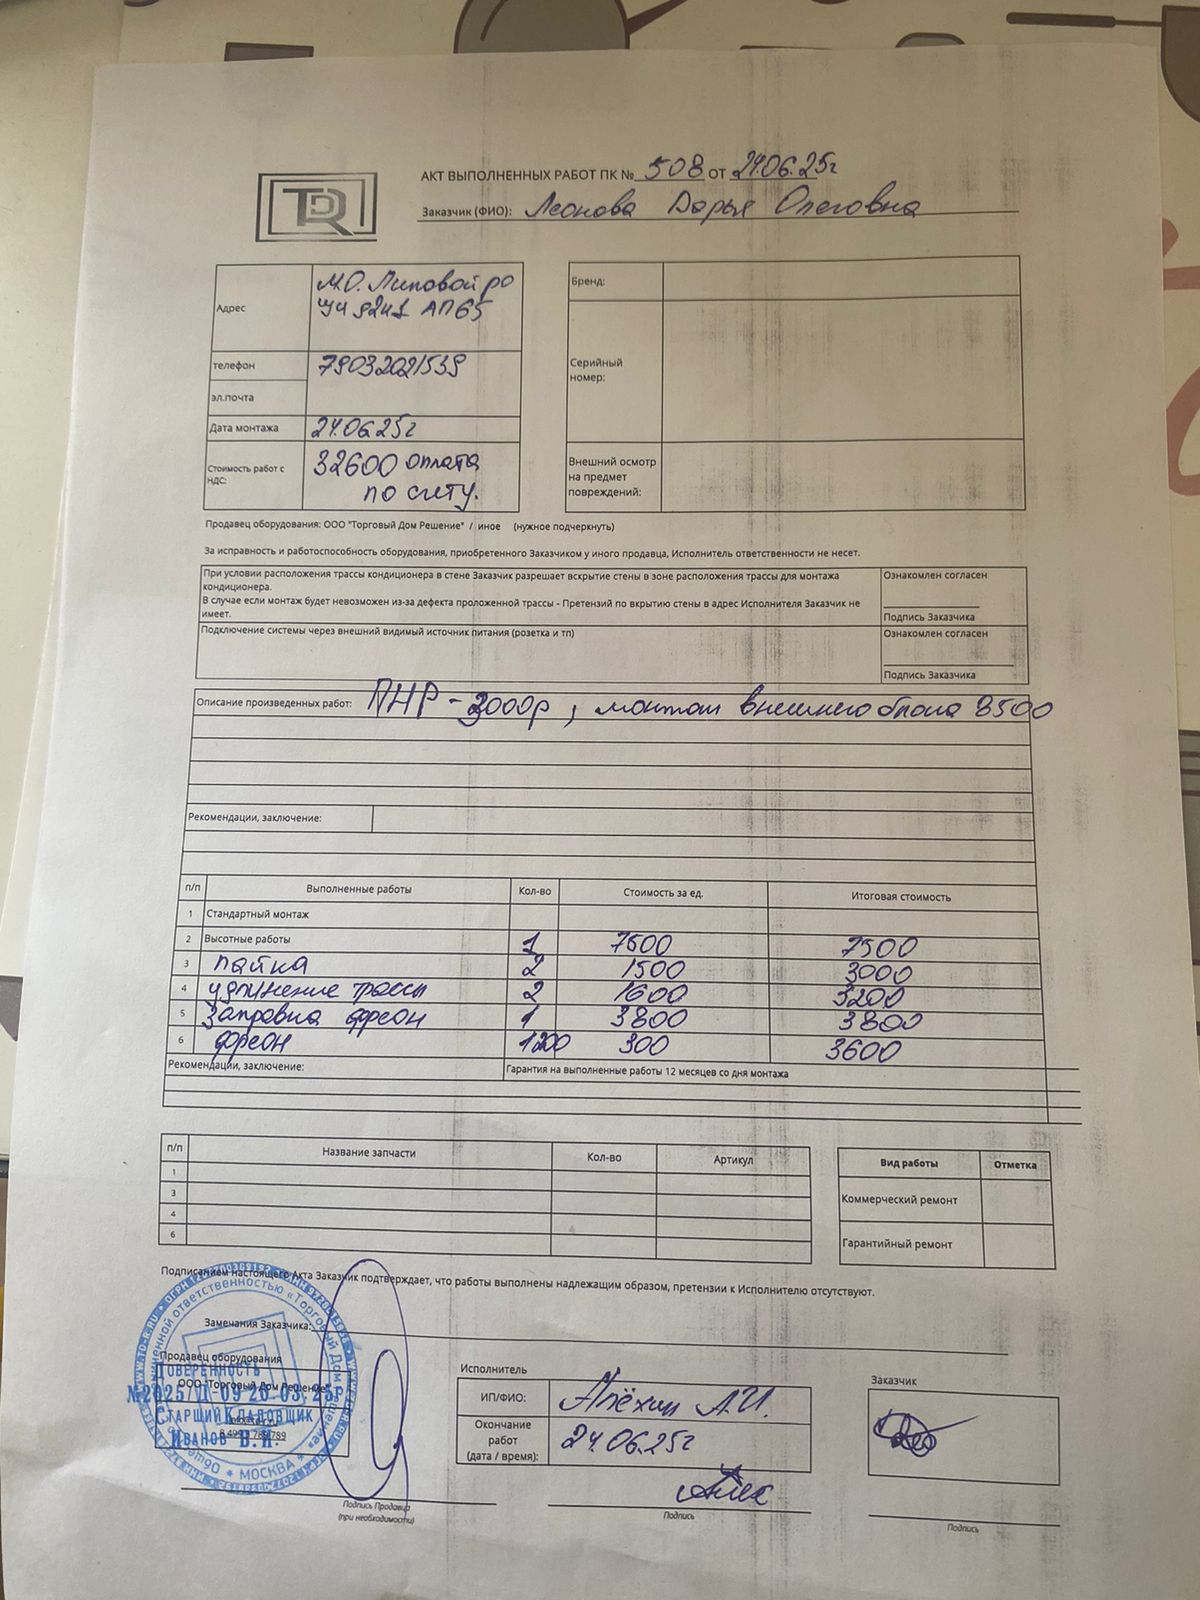 TDR
АКТ ВЫПОЛНЕННЫХ РАБОТ ПК № 508 от 24.06.25г
Заказчик (ФИО): Леонова Дарья Олеговна
Адрес
М.О. Липовой ро
щи д2к1 АП65
телефон 79032021539
эл.почта
Дата монтажа 24.06.25г
Стоимость работ с НДС: 32600 оплата
по счету.
Бренд:
Серийный номер:
Внешний осмотр на предмет повреждений:
Продавец оборудования: ООО "Торговый Дом Решение" / иное (нужное подчеркнуть)
За исправность и работоспособность оборудования, приобретенного Заказчиком у иного продавца, Исполнитель ответственности не несет.
При условии расположения трассы кондиционера в стене Заказчик разрешает вскрытие стены в зоне расположения трассы для монтажа
кондиционера.
В случае если монтаж будет невозможен из-за дефекта проложенной трассы - Претензий по вкрытию стены в адрес Исполнителя Заказчик не
имеет.
Ознакомлен согласен
Подпись Заказчика
Подключение системы через внешний видимый источник питания (розетка и тп)
Ознакомлен согласен
Подпись Заказчика
Описание произведенных работ: ПНР - 3000р, монтаж внешнего блока 8500
Рекомендации, заключение:
п/п Выполненные работы Кол-во Стоимость за ед. Итоговая стоимость
1 Стандартный монтаж
2 Высотные работы 1 7500 7500
3 пайка 2 1500 3000
4 удлинение трассы 2 1600 3200
5 Заправка фреон 1 3800 3800
6 фреон 1200 300 3600
Рекомендации, заключение: Гарантия на выполненные работы 12 месяцев со дня монтажа
п/п Название запчасти Кол-во Артикул
1
3
4
6
Вид работы Отметка
Коммерческий ремонт
Гарантийный ремонт
Подписанием настоящего Акта Заказчик подтверждает, что работы выполнены надлежащим образом, претензии к Исполнителю отсутствуют.
Замечания Заказчика:
Продавец оборудования
ООО "Торговый Дом Решение"
Доверенность
Старший Кладовщик
Иванов В.Н.
МОСКВА
Подпись Продавца
(при необходимости)
Исполнитель
ИП/ФИО: Алёхин А.И.
Окончание работ (дата / время): 24.06.25г
Подпись
Заказчик
Подпись